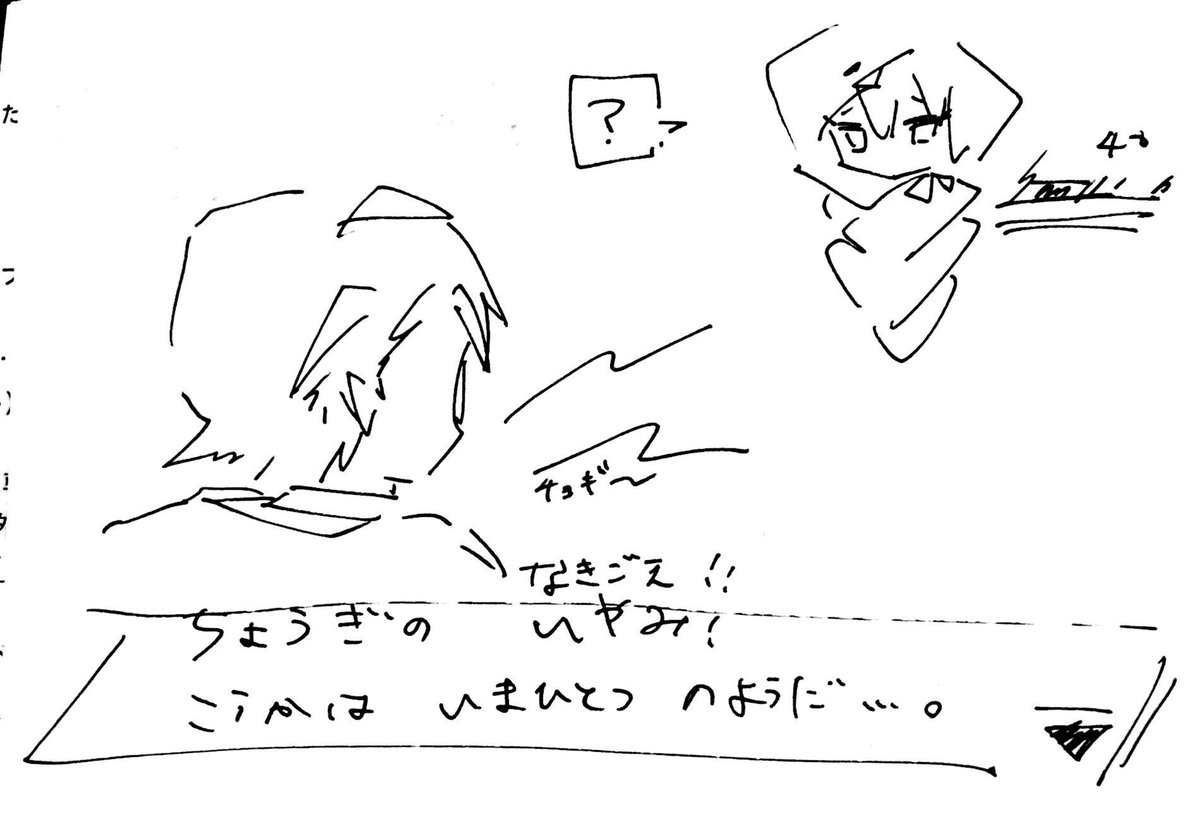 ?
チョギ〜
なきごえ!!
ちょうぎの いやみ!
こうかは いまひとつ のようだ…。